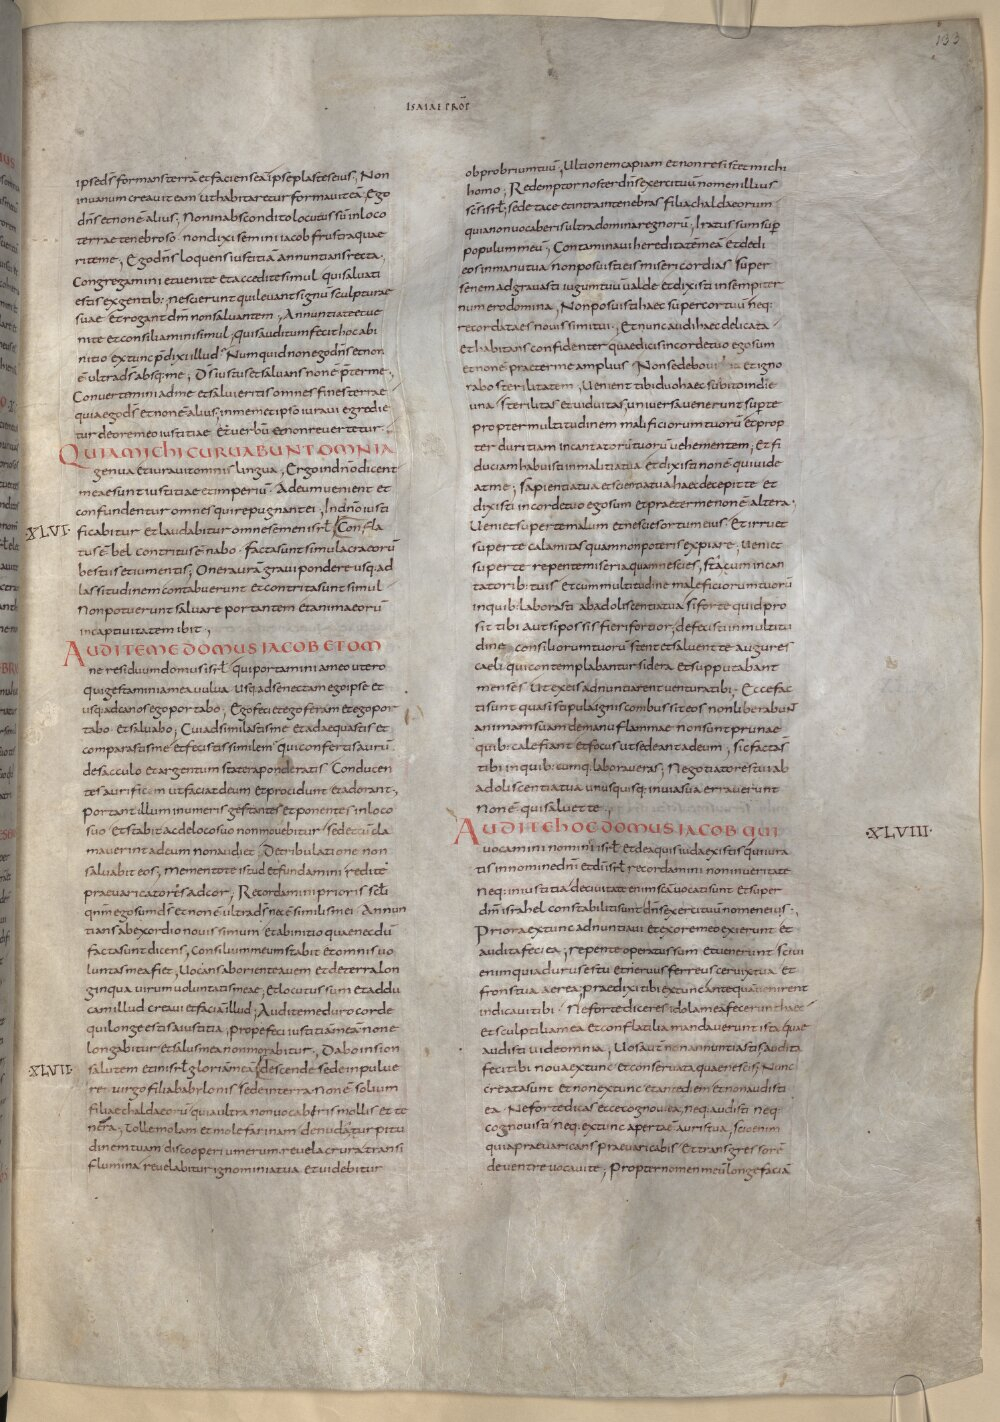 133
ISAIAE PROP̄
ipse d̄s formans terrā et faciens eā ipse plastes eius; Non
in uanum creauit eam ut habitaretur formauit eā; Ego
dn̄s et non ē alius; Non in abscondito locutus sū in loco
terrae tenebroso · non dixi semini iacob frustra quae
rite me; Ego dn̄s loquens iustitia annuntians recta ·
Congregamini et uenite et accedite simul qui saluati
estis ex gentib: nescierunt qui leuant signū sculpturae
suae et rogant dm̄ non saluantem; Annuntiate et ue
nite et consiliamini simul; quis auditum fecit hoc ab i
nitio ex tunc p̄dixi illud Numquid non ego dn̄s et non
ē ultra d̄s absq: me; D̄s iustus et saluans non ē p̄ter me;
Conuertemini ad me et salui eritis omnes fines terrae
quia ego d̄s et non ē alius; in memet ipso iuraui egredie
tur de ore meo iustitiae et uerbū et non reuertetur ·
QUIA MICHI CURUABUNT OMNIA
genua et iurauit omnis lingua; Ergo in dn̄o dicent
meae sunt iustitiae et imperiū · Ad eum uenient et
confundentur omnes qui repugnant ei; In dn̄o iusti
·XLVI· ficabitur et laudabitur omne semen isrł Confla
tus ē bel contritus ē nabo · facta sunt simulacra eorū
bestiis et iumentis; Onera urā graui pondere usq: ad
lassitudinem contabuerunt et contrita sunt simul
Non potuerunt saluare portantem et anima eorū
in captiuitatem ibit;
AUDITE ME DOMUS IACOB ET OM
ne residuum domus isrł qui portamini a meo utero
qui gestamini a mea uulua usq: ad senectam ego ipse et
usq: ad canos ego portabo · Ego feci et ego feram et ego por
tabo et saluabo; Cui adsimilastis me et adaequastis et
comparastis me et fecistis similem qui confertis aurū
de sacculo et argentum statera ponderatis Conducen
tes aurificem ut faciat deum et procidunt et adorant;
Portant illum in umeris gestantes et ponentes in loco
suo et stabit ac de loco suo non mouebitur sed et cū cla
mauerint ad eum non audiet De tribulatione non
saluabit eos; Mementote istud et fundamini redite
praeuaricatores ad cor; Recordamini prioris sc̄li
qn̄m ego sum d̄s et non ē ultra d̄s nec ē similis mei Annun
tians ab exordio nouissimum et ab initio quae necdū
facta sunt dicens, Consilium meum stabit et omnis uo
luntas mea fiet; Uocans ab oriente auem et de terra lon
ginqua uirum uoluntatis meae; Et locutus sum et addu
cam illud creaui et faciā illud; Audite me duro corde
qui longe estis a iustitia; prope feci iustitiā meā non e
longabitur et salus mea non morabitur; Dabo in sion
·XLVII· salutem et in isrł gloriā meā descende sede in puluE
re uirgo filia babylonis sede in terra non ē solium
filiae chaldaeorū quia ultra non uocaberis mollis et te
nera; Tolle molam et mole farinam denuda turpitu
dinem tuam discooperi umerum reuela crura transi
flumina reuelabitur ignominia tua et uidebitur
obprobrium tuū; Ultionem capiam et non resistet michi
homo; Redemptor noster dn̄s exercituū nomen illius
sc̄s isrł; sede tace et intra in tenebras filia chaldaeorum
quia non uocaberis ultra domina regnorū; Iratus sum sup̄
populum meū; Contaminaui hereditatē meā et dedi
eos in manu tua non posuisti eis misericordias super
senem adgrauasti iugum tuū ualde et dixisti in sempiter
num ero domina; Non posuisti haec super cor tuū neq:
recordata es nouissimi tui; Et nunc audi haec delicata
et habitans confidenter quae dicis in corde tuo ego sum
et non ē praeter me amplius Non sedebo uidua et igno
rabo sterilitatem; Uenient tibi duo haec subito in die
una sterilitas et uiduitas; uniuersa uenerunt sup te
propter multitudinem malificiorum tuorū et prop
ter duritiam incantatorū tuorū uehementem; Et fi
duciam habuisti in malitia tua et dixisti non ē qui uide
at me; sapientia tua et scientia tua haec decepit te et
dixisti in corde tuo ego sum et praeter me non ē altera ·
Ueniet super te malum et nescies ortum eius Et irruet
super te calamitas quam non poteris expiare; ueniet
super te repente miseria quam nescies, sta cum incan
tatorib: tuis et cum multitudine maleficiorum tuorū
in quib: laborasti ab adoliscentia tua si forte quid pro
sit tibi aut si possis fieri fortior; defecisti in multitu
dine consiliorum tuorū stent et saluent te augures
caeli qui contemplabantur sidera et supputabant
menses ut ex eis adnuntiarent uentura tibi · Ecce fac
ti sunt quasi stipula ignis combussit eos non liberabunt
animam suam de manu flammae non sunt prunae
quib: calefiant et focus ut sedeant ad eum; sic facta s̄
tibi in quib:cumq: laboraueras; Negotiatores tui ab
adoliscentia tua unusquisq: in uia sua errauerunt
non ē qui saluet te ·
AUDITE HOC DOMUS IACOB QUI ·XLVIII·
uocamini nomini isrł et de aquis iuda existis qui iura
tis in nomine dn̄i et dī isrł recordamini non in ueritate
neq: in iustitia de ciuitate enim sc̄a uocati sunt et super
dm̄ israhel constabiliti sunt dn̄s exercituū nomen eius ·
Priora ex tunc adnuntiaui et ex ore meo exierunt et
audita feci ea; repente operatus sum et uenerunt sciui
enim quia durus es tu et neruus ferreus ceruix tua et
frons tua aerea praedixi tibi ex tunc antequā uenirent
indicaui tibi · Ne forte diceres idola mea fecerunt haec
et sculptilia mea et conflatilia mandauerunt ista quae
audisti uide omnia; Uos aut̄ non annuntiastis audita
feci tibi noua ex tunc et conseruata quae nescis; Nunc
creata sunt et non ex tunc et ante diem et non audisti
ea · Ne forte dicas ecce cognoui ea, neq: audisti neq:
cognouisti neq: ex tunc aperta ē auris tua; scio enim
quia praeuaricans praeuaricabis et transgressorē
de uentre uocaui te; Propter nomen meū longe faciā